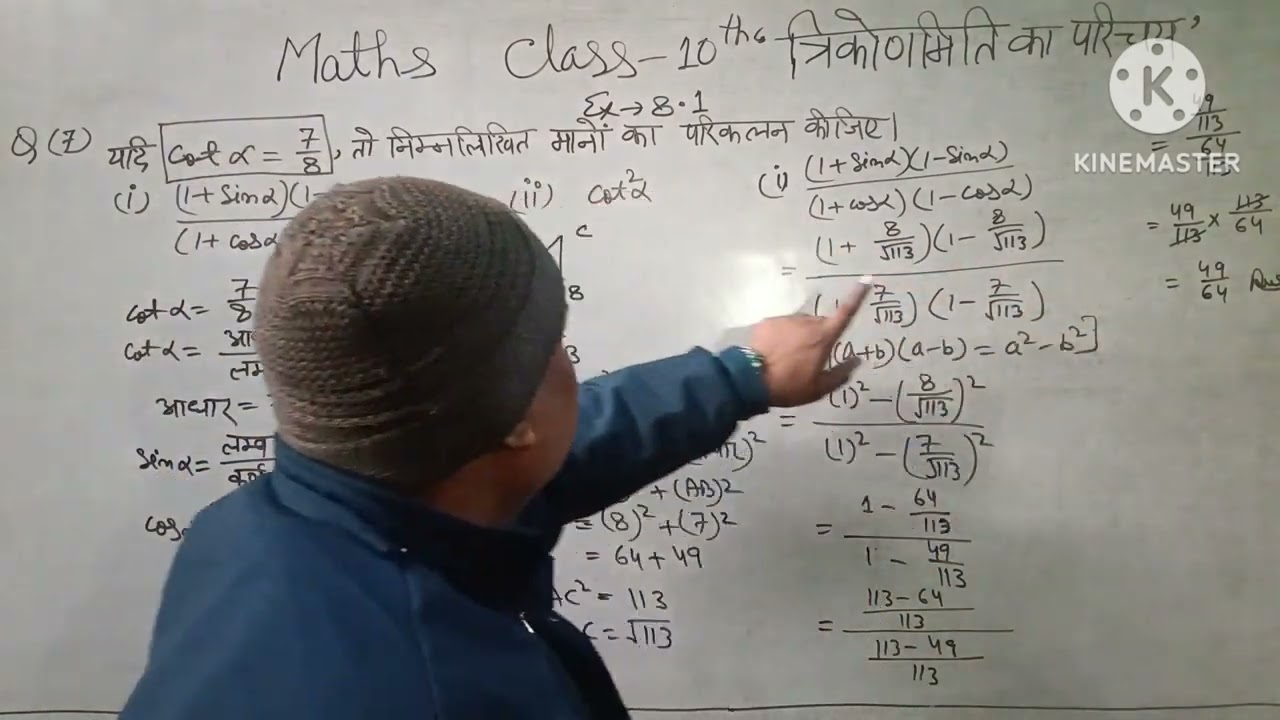 Maths Class-10ths त्रिकोणमिति का परिचय,
Ex → 8.1
Q(7) यदि cot α = 7/8, तो निम्नलिखित मानों का परिकलन कीजिए।
(i) (1+sinα)(1-
(1+cosα
(ii) cot²α
C
8
cot α = 7/8
cot α =
आधार =
sinα = लम्ब
cos
)²
+(AB)²
= (8)² + (7)²
= 64 + 49
AC² = 113
C = √113
(i) (1+sinα)(1-sinα)
(1+cosα)(1-cosα)
= (1+ 8/√113)(1- 8/√113)
7/√113)(1- 7/√113)
(a+b)(a-b) = a²-b²]
= (1)² - (8/√113)²
(1)² - (7/√113)²
= 1 - 64/113
1 - 49/113
= 113-64/113
113-49/113
= 49/113
64/113
= 49/113 × 113/64
= 49/64 Ans
K
KINEMASTER